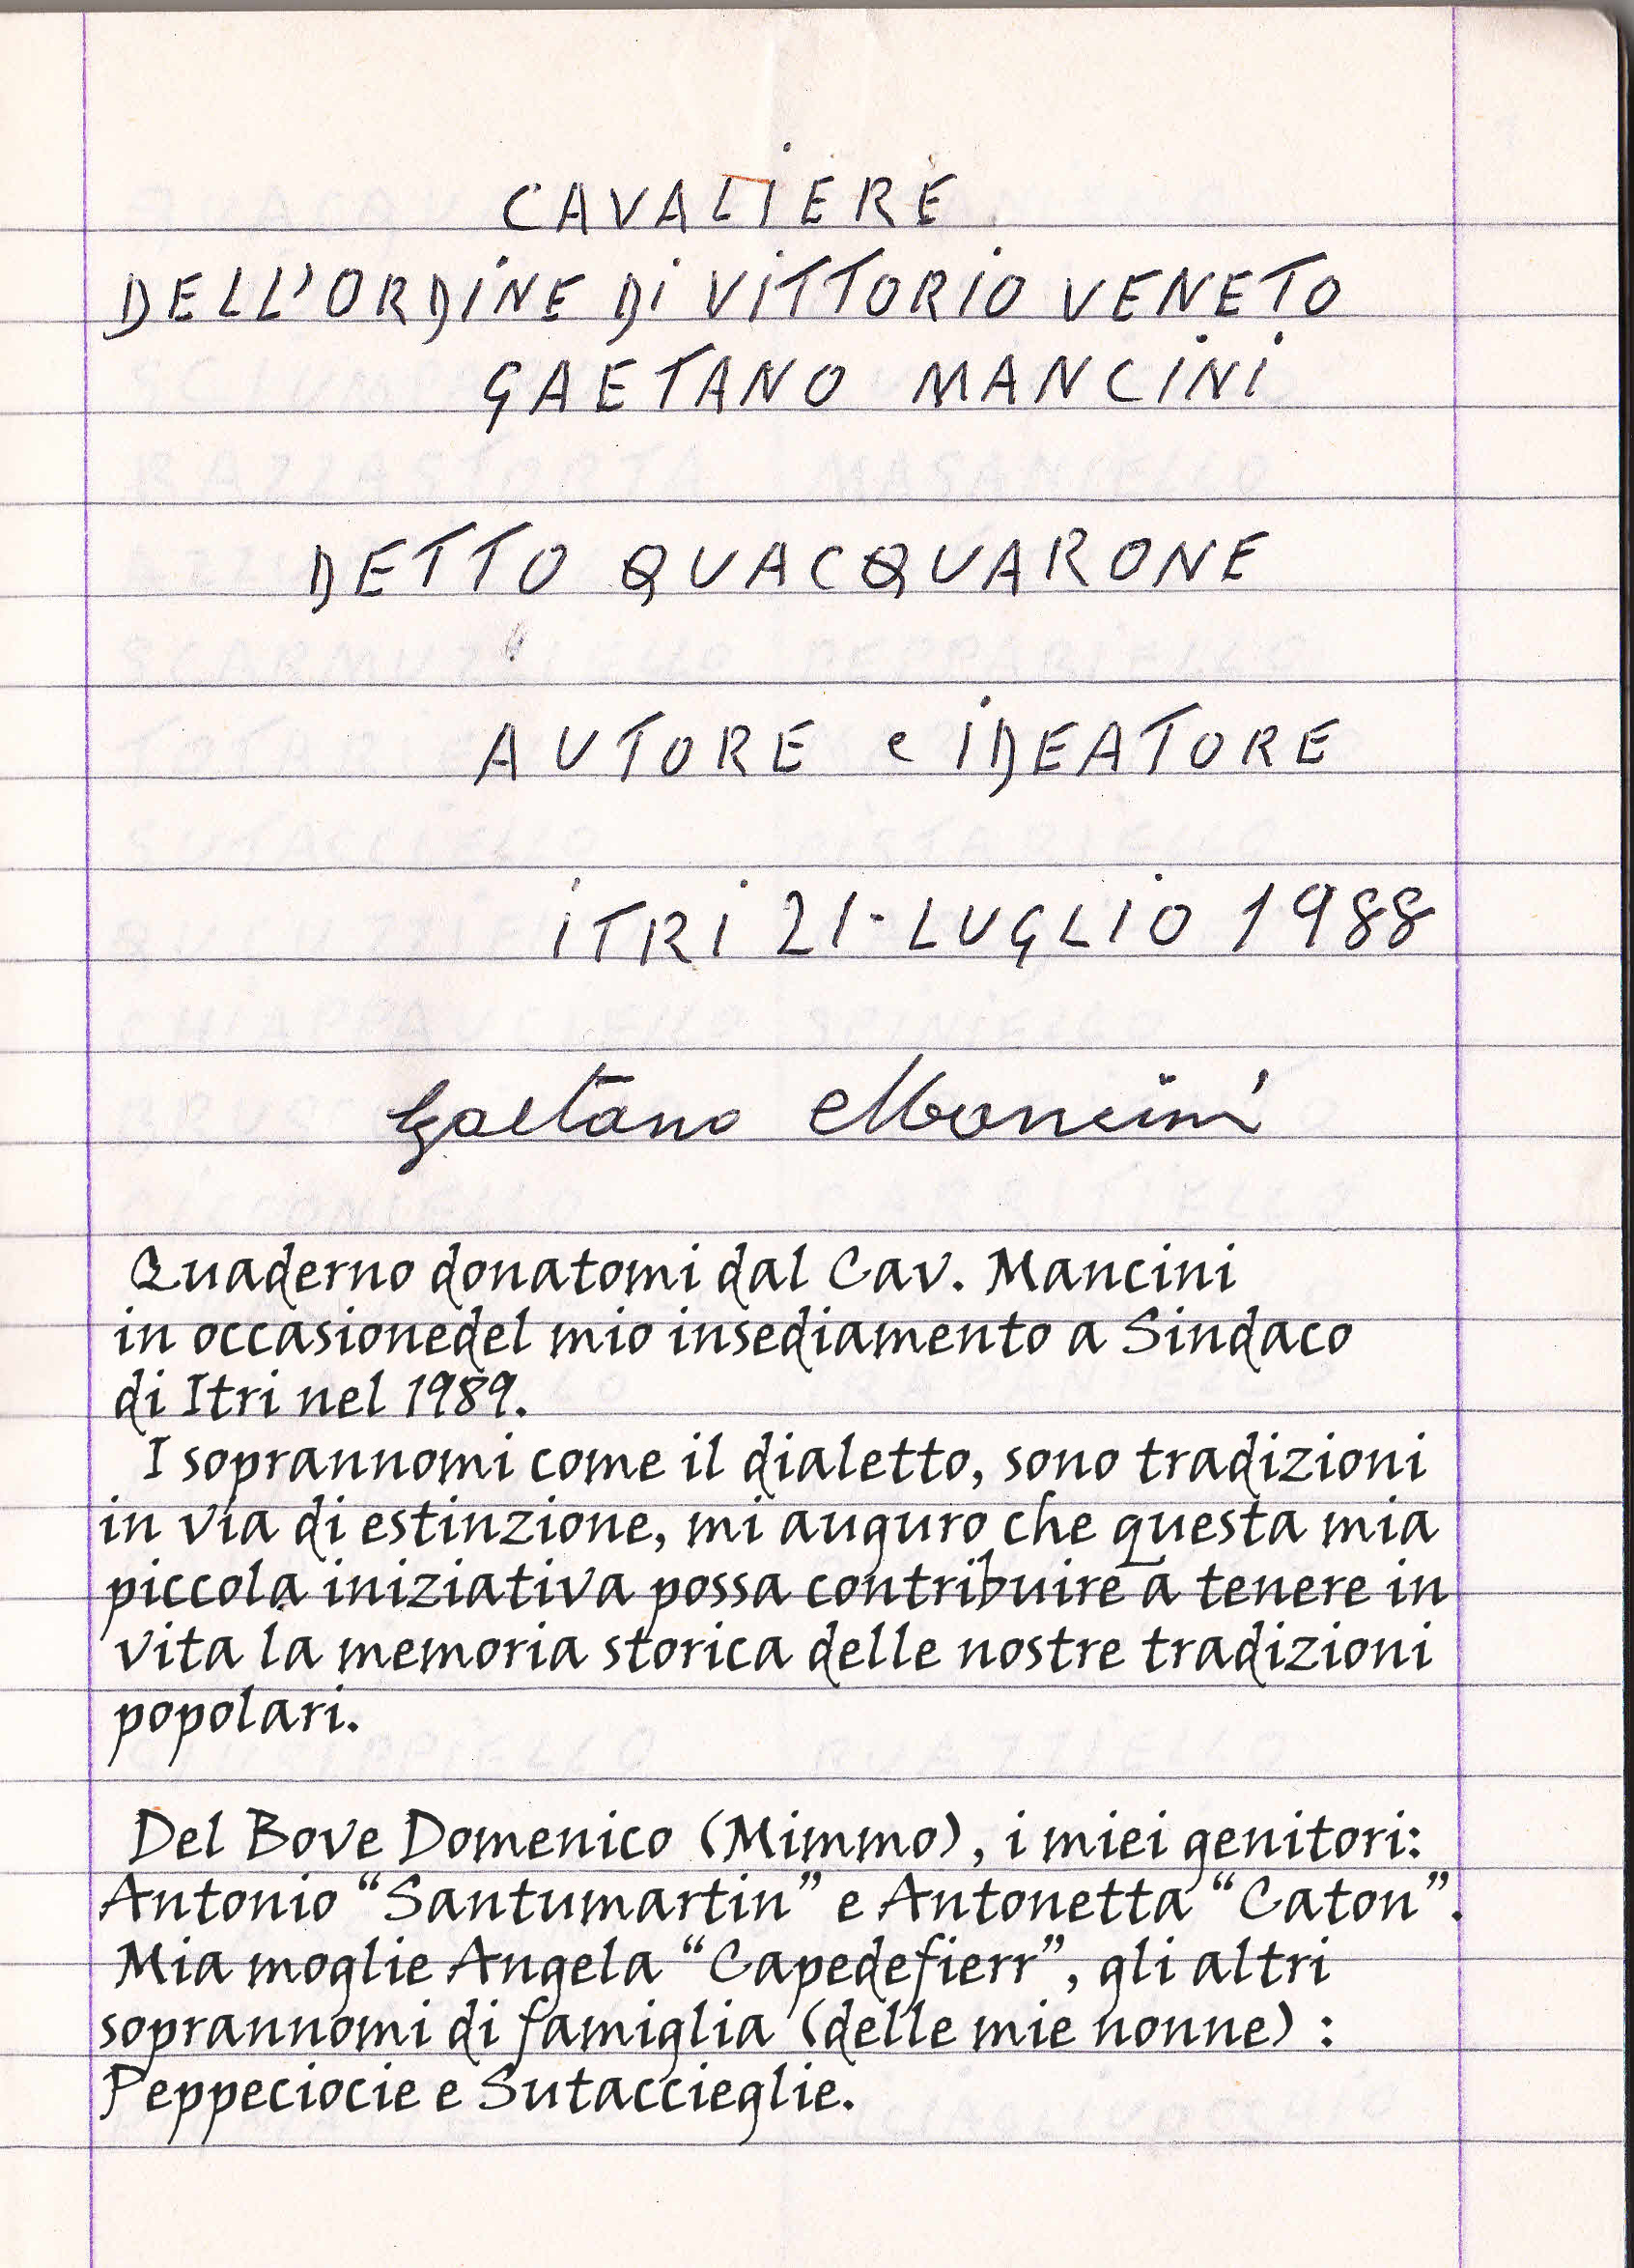 CAVALIERE
DELL'ORDINE DI VITTORIO VENETO
GAETANO MANCINI
DETTO QUACQUARONE
AUTORE e IDEATORE
ITRI 21·LUGLIO 1988
Gaetano Mancini
Quaderno donatomi dal Cav. Mancini
in occasionedel mio insediamento a Sindaco
di Itri nel 1989.
I soprannomi come il dialetto, sono tradizioni
in via di estinzione, mi auguro che questa mia
piccola iniziativa possa contribuire a tenere in
vita la memoria storica delle nostre tradizioni
popolari.
Del Bove Domenico (Mimmo), i miei genitori:
Antonio “Santumartin” e Antonetta “Caton”.
Mia moglie Angela “Capedefierr”, gli altri
soprannomi di famiglia (delle mie nonne) :
Peppeciocie e Sutaccieglie.